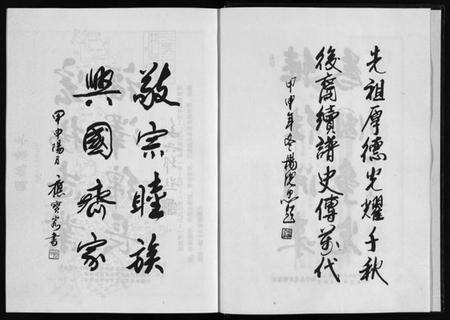 先祖厚德光耀千秋
後裔續譜史傳萬代
甲申年冬楊
敬宗睦族
興國齊家
甲申陽月應書